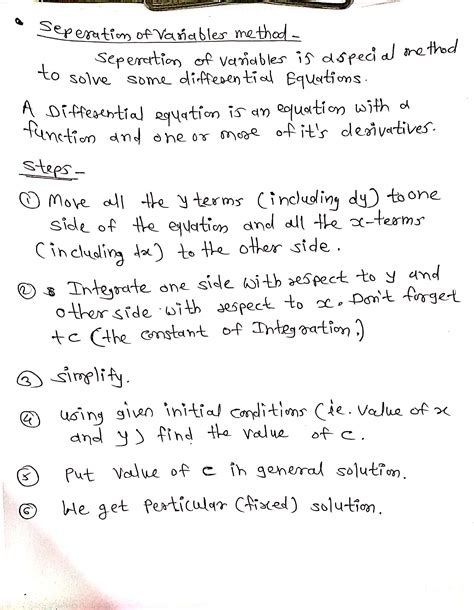 • Seperation of Variables method -
Seperation of variables is a special method
to solve some differential Equations.
A Differential equation is an equation with a
function and one or more of it's derivatives.
Steps -
① Move all the y terms (including dy) to one
side of the equation and all the x-terms
(including dx) to the other side.
② Integrate one side with respect to y and
other side with respect to x. Don't forget
+c (the constant of Integration.)
③ simplify.
④ using given initial conditions (ie. value of x
and y) find the value of c.
⑤ Put value of c in general solution.
⑥ We get Perticular (fixed) solution.